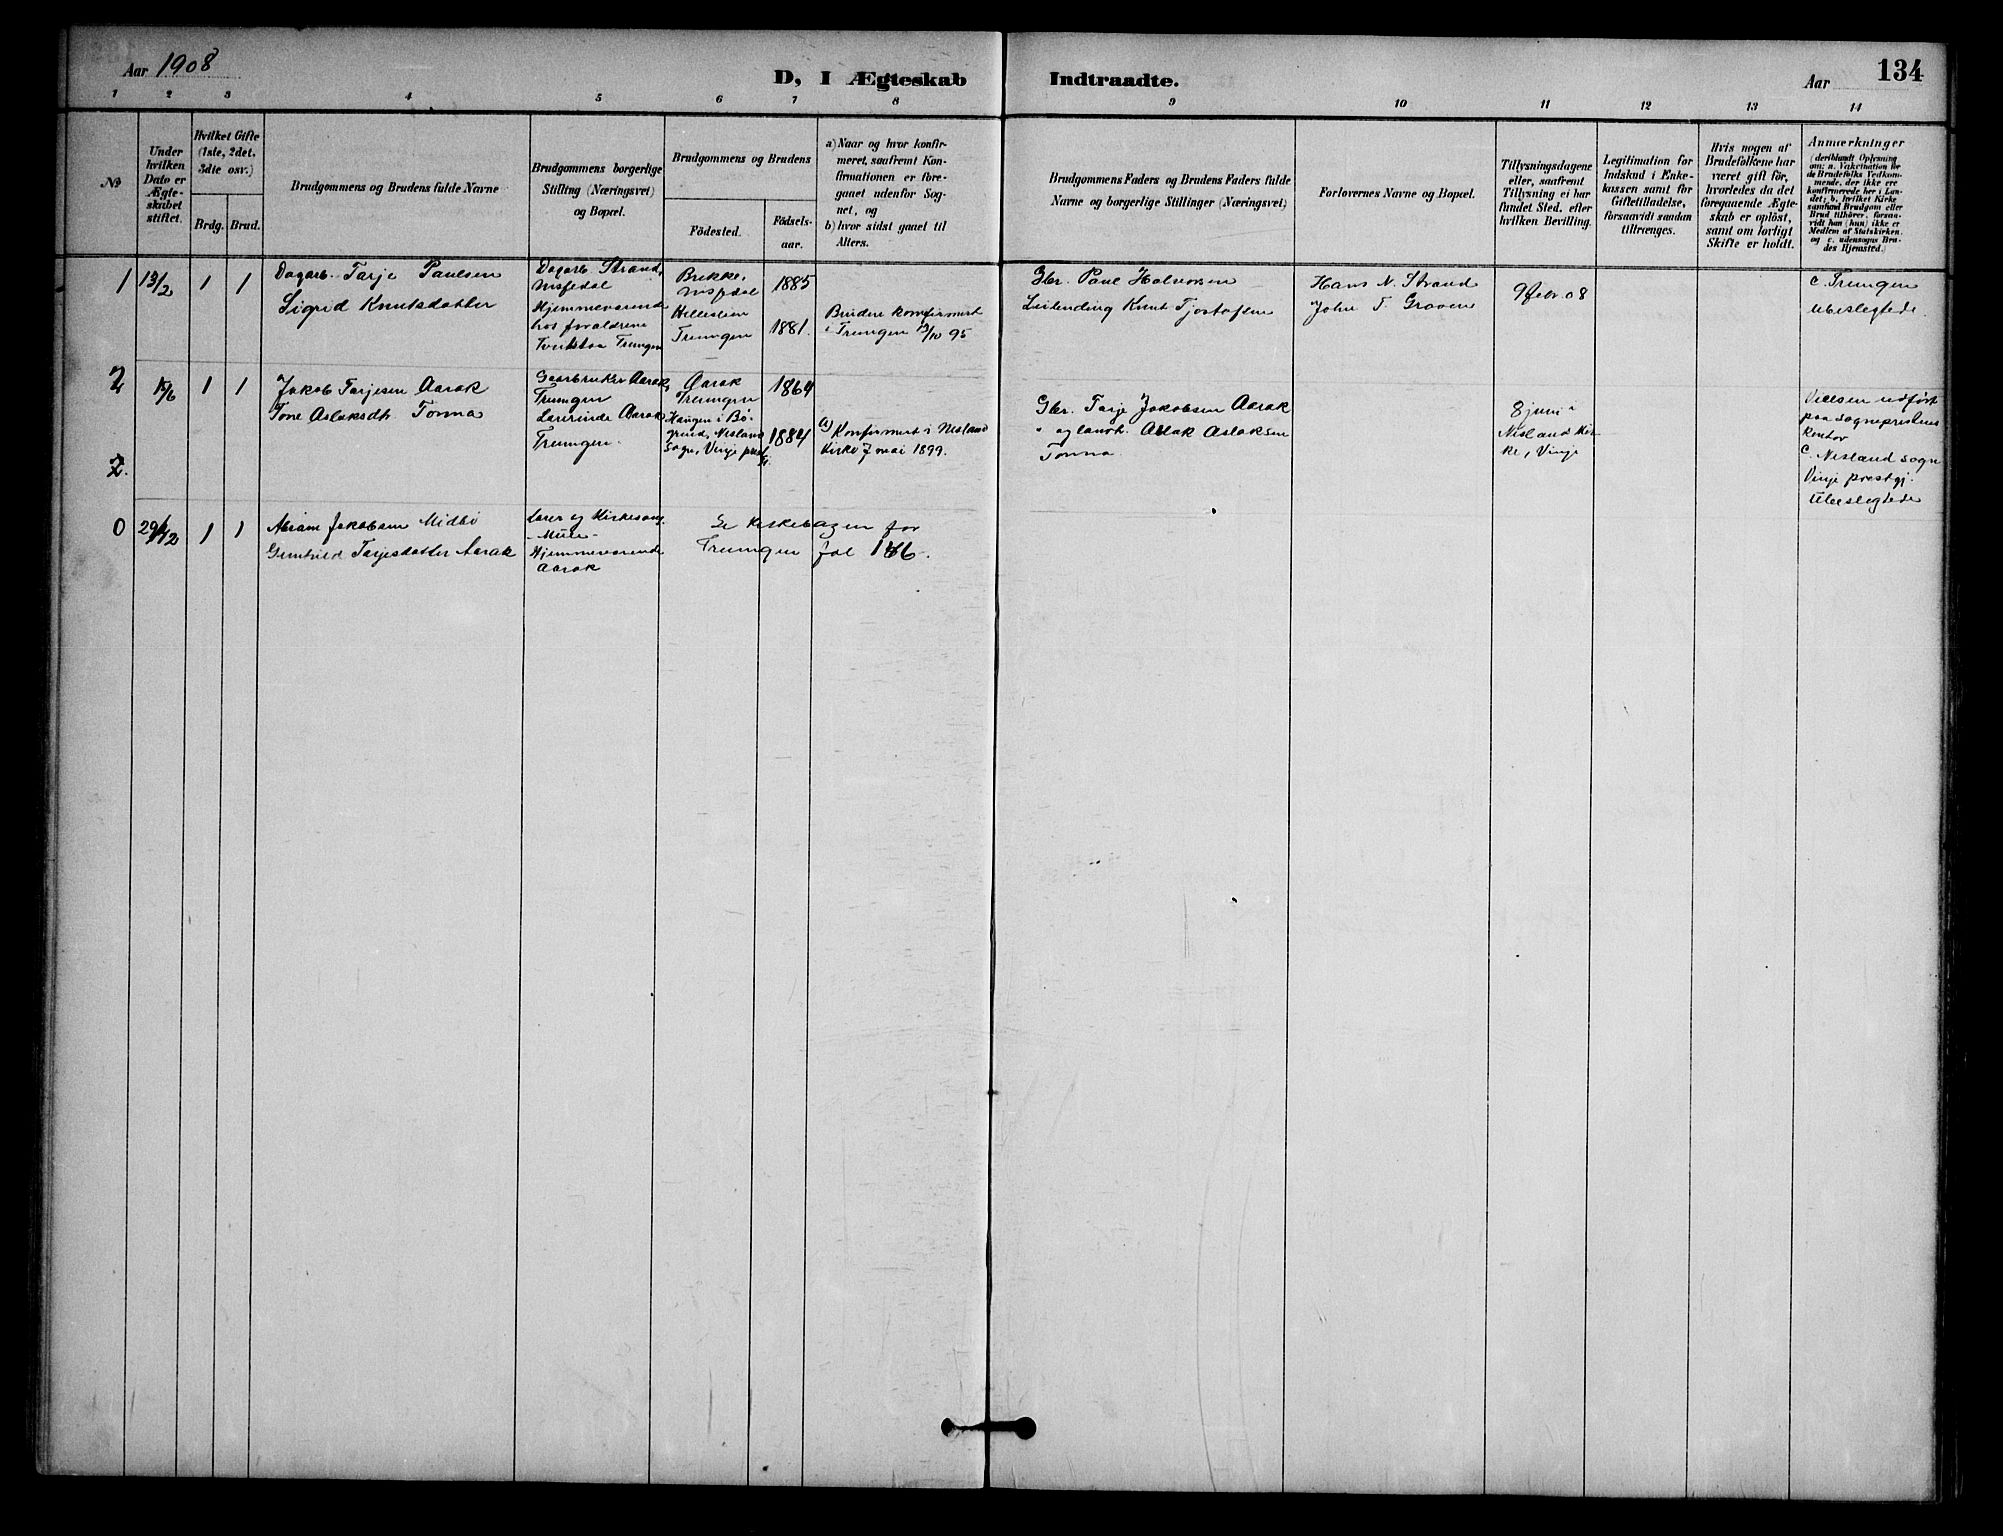 Aar 1908
D, I Ægteskab Indtraadte.
Aar
134
1 2 3 4 5 6 7 8 9 10 11 12 13 14
№
Under
hvilken
Dato er
Ægte-
skabet
stiftet.
Hvilket Gifte
(1ste, 2det,
3dte osv.)
Brdg. Brud.
Brudgommens og Brudens fulde Navne
Brudgommens borgerlige
Stilling (Næringsvei)
og Bopæl.
Brudgommens og Brudens
Födested.
Födsels-
aar.
a) Naar og hvor konfir-
meret, saafremt Kon-
firmationen er fore-
gaaet udenfor Sog-
net, og
b) hvor sidst gaaet til
Alters.
Brudgommens Faders og Brudens Faders fulde
Navne og borgerlige Stillinger (Næringsvei)
Forlovernes Navne og Bopæl.
Tillysningsdagene
eller, saafremt
Tillysning ei har
fundet Sted, efter
hvilken Bevilling.
Legitimation for
Indskud i Enke-
kassen samt for
Giftetilladelse,
forsaavidt saadan
tiltrænges.
Hvis nogen af
Brudefolkene har
været gift för,
hvorledes da det
foregaaende Ægte-
skab er oplöst,
samt om lovligt
Skifte er holdt.
Anmærkninger
(deriblandt Oplysning
om: a. Vakcination for
de Brudefolks Vedkom-
mende, der ikke ere
konfirmerede her i Lan-
det; b. hvilket Kirke
samfund Brudgom eller
Brud tilhörer, forsaa-
vidt han (hun) ikke er
Medlem af Statskirken,
og c. udensogns Bru-
des Hjemsted.)
1 13/2 1 1
Dagarb. Tarje Paulsen
Sigrid Knutsdatter
Dagarb. Strand,
Nisfedal
Hjemmeværende
hos forældrene
Treungen
Brekke,
Nisfedal
Hellestein
Treungen
1885
1881.
Bruden konfirmert
i Treungen /10 95
Gbr. Paul Halvorsen
Leilending Knut Tjostofsen
Hans N. Strand
John T. Groven
9 febr. 08
c. Treungen
ubeslegtede.
2 15/6 1 1
Jakob Tarjesen Aarak
Tone Aslaksdtr. Tonna
Gaarbruker Aarak,
Treungen
Lærerinde Aarak
Treungen.
Aarak
Treungen
Haugen i Bø-
grend, Nesland
sogn, Vinje
1864
1884
a) Konfirmert i Nesland
kirke 7 mai 1899.
Gbr. Tarje Jakobsen Aarak
" og landh. Aslak Aslaksen
Tonna
8 juni i
Nesland kir-
ke, Vinje
Vielsen udført
paa sogneprestens
kontor
c. Nesland sogn
Vinje prestgj.
Ubeslegtede
2.
0 29/12 1 1
Abram Jakobsen Midbö
Gunhild Tarjesdatter Aarak
Lærer og kirkesang.
Hjemmeværende
Aarak
Se kirkebogen for
Treungen fol 186.